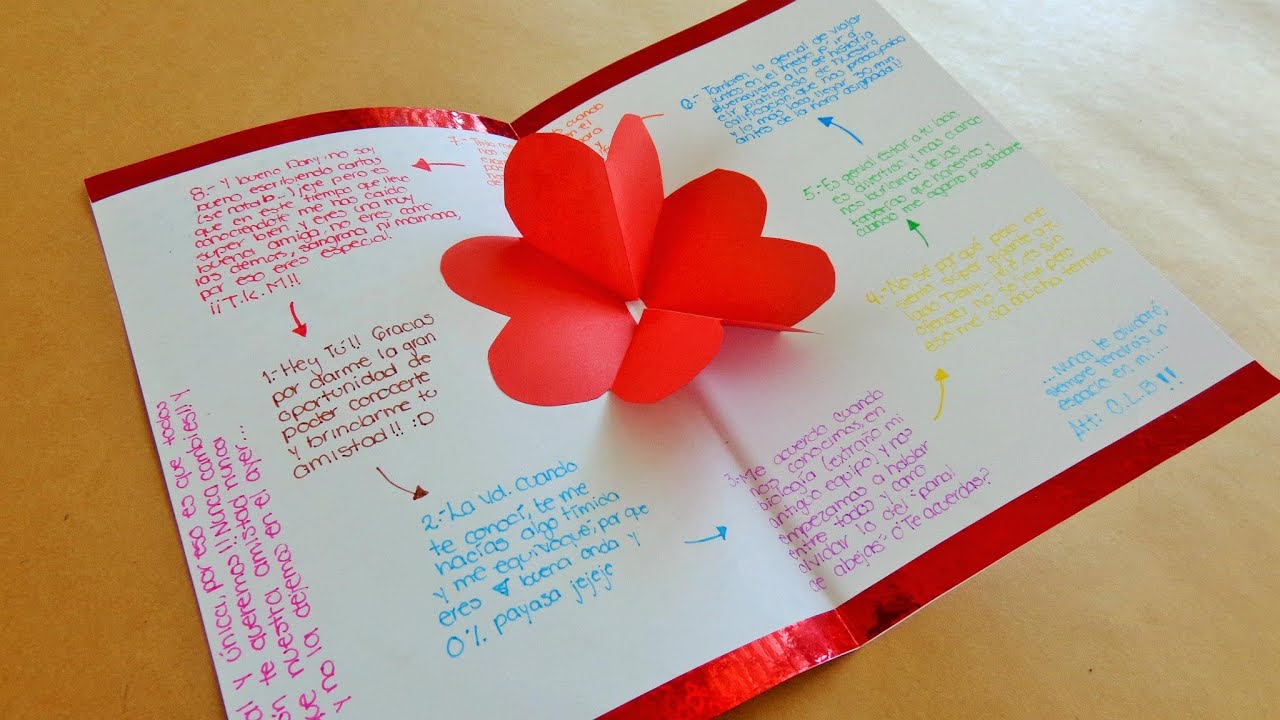 1.-Hey Tú!! Gracias
por darme la gran
oportunidad de
poder conocerte
y brindarme tu
amistad!! :D
2.-La vd. cuando
te conocí, te me
hacías algo tímida
y me equivoqué; por que
eres buena onda y
0% payasa jejeje
3.-Me acuerdo cuando
nos conocimos, en
biología (extraño mi
antiguo equipo) y nos
empezamos a hablar
entre todos y cómo
olvidar lo del panal
de abejas :O Te acuerdas?
4.-No sé por qué pero me
daría súper gigante a tu
lado Dany
ofender no se debe pero
eso me da mucha ternura
5.-Es genial estar a tu lado,
es divertido y más cuando
nos burlamos de las
tonterías que hacemos y
cuando me agacho p/saludarte
6.-También lo genial de viajar
juntos en el metro p/ir a
Buenavista a lo de historia
e ir platicando de nuestra
calificación que nos preocupaba
y lo más loco, llegar 30 min
antes de la hora asignada!!
7.-
cuando
en el
8.- Y bueno Dany, no soy
bueno escribiendo cartas
(se nota)b... y jeje pero es
que en este tiempo que llevo
conociéndote me has caído
super bien y eres una muy
buena amiga, no eres como
las demás, sangrona, ni mamona,
por eso eres especial
¡¡T.K.M!!
y única, por eso es que todos
te queremos!! Nunca cambies!! Y
que nuestra amistad nunca
y no la dejemo en el ayer...
...Nunca te olvidaré,
siempre tendrás un
espacio en mi...
Att: C.L.B!!